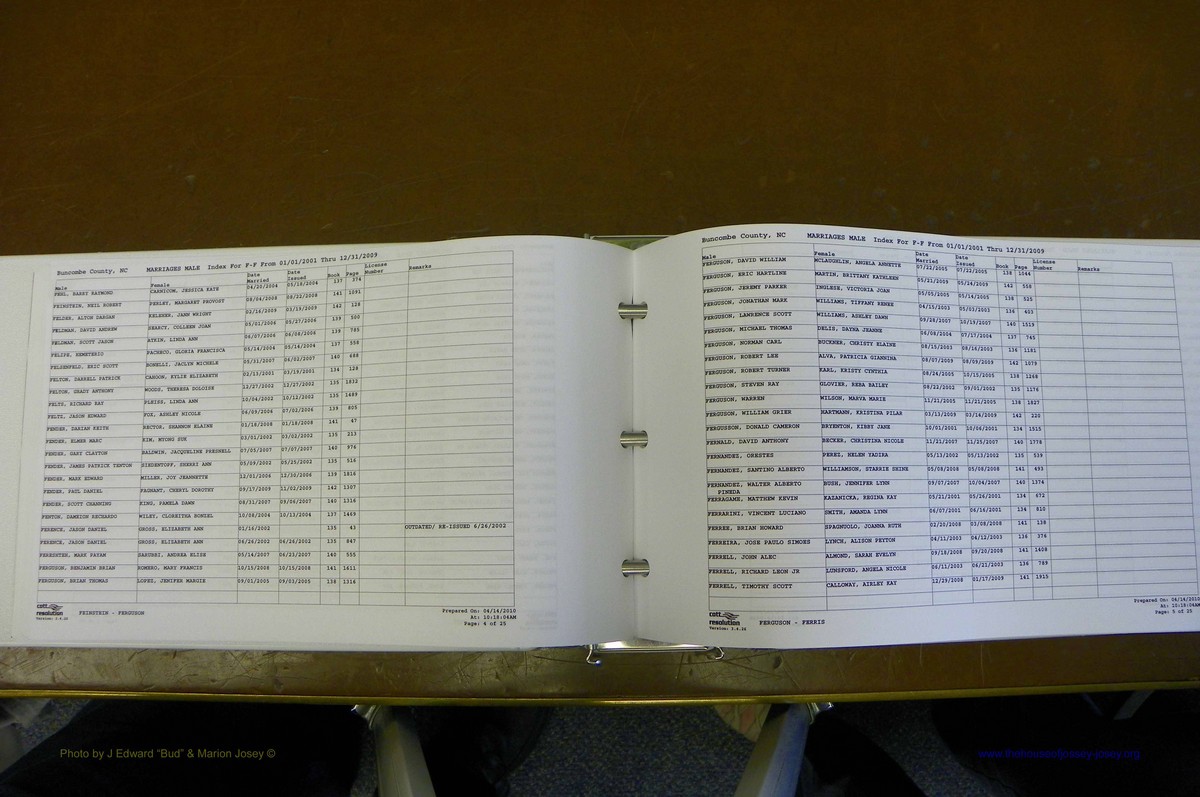 Buncombe County, NC MARRIAGES MALE Index For F-F From 01/01/2001 Thru 12/31/2009
Male Female Date Married Date Issued Book Page License Number Remarks
FEHL, BARRY RAYMOND CARNICUM, JESSICA KAYE 04/20/2004 05/18/2004 137 374
FEINSTEIN, NEIL ROBERT PERLEY, MARGARET PROVOST 08/04/2008 08/22/2008 141 1091
FELDER, ALTON DARGAN KELHKER, JANN WRIGHT 02/16/2009 03/19/2009 142 128
FELDMAN, DAVID ANDREW SEARCY, COLLEEN JOAN 05/01/2006 05/27/2006 139 500
FELDMAN, SCOTT JASON ATKIN, LINDA ANN 06/07/2006 06/08/2006 139 785
FELIPE, REMETERIO PACHECO, GLORIA FRANCISCA 05/14/2004 05/14/2004 137 558
FELSENFELD, ERIC SCOTT BONELLI, JACLYN MICHELE 05/31/2007 06/02/2007 140 688
FELTON, DARRELL PATRICK CARDON, KYLIE ELIZABETH 02/13/2001 03/19/2001 134 128
FELTON, GRADY ANTHONY WOODS, THERESA DOLOISE 12/27/2002 12/27/2002 135 1832
FELTS, RICHARD RAY PLEISS, LINDA ANN 10/04/2002 10/12/2002 135 1489
FELTS, JASON EDWARD FOX, ASHLEY NICOLE 06/09/2006 07/02/2006 139 805
FENDER, DARIAN KEITH RECTOR, SHANNON ELAINE 01/18/2008 01/18/2008 141 47
FENDER, ELMER MARC KIM, MYONG SUK 03/01/2002 03/02/2002 135 213
FENDER, GARY CLAYTON BALDWIN, JACQUELINE PRESNELL 07/05/2007 07/07/2007 140 976
FENDER, JAMES PATRICK TENTON SIEDENTOPF, SHERRI ANN 05/09/2002 05/25/2002 135 516
FENDER, MARK EDWARD MILLER, JOY JEANNETTE 12/01/2006 12/30/2006 139 1816
FENDER, PAUL DANIEL FAUNANT, CHERYL DOROTHY 09/17/2009 11/02/2009 142 1307
FENDER, SCOTT CHANNING KING, PAMELA DAWN 08/31/2007 09/06/2007 140 1316
FENTON, DAMEION RECHARDO WILEY, CLOREITHA BONZEL 10/08/2004 10/13/2004 137 1469
FERENCE, JASON DANIEL GROSS, ELIZABETH ANN 01/16/2002 135 43 OUTDATED/ RE-ISSUED 6/26/2002
FERENCE, JASON DANIEL GROSS, ELIZABETH ANN 06/26/2002 06/26/2002 135 847
FERESHTER, MARK PAYAM SABURRI, ANDREA ELISE 05/14/2007 06/23/2007 140 555
FERGUSON, BENJAMIN BRIAN ROMERO, MARY FRANCIS 10/15/2008 10/15/2008 141 1611
FERGUSON, BRIAN THOMAS LOPES, JENIFER MARGIE 09/01/2005 09/03/2005 138 1316
cott resolution
Version: 3.4.20
FEINSTEIN - FERGUSON
Prepared On: 04/14/2010
At: 10:18:04AM
Page: 4 of 25
Buncombe County, NC MARRIAGES MALE Index For F-F From 01/01/2001 Thru 12/31/2009
Male Female Date Married Date Issued Book Page License Number Remarks
FERGUSON, DAVID WILLIAM MCLAUGHLIN, ANGELA ANNETTE 07/22/2005 07/22/2005 138 1046
FERGUSON, ERIC HARTLINE MARTIN, BRITTANY KATHLEEN 05/21/2009 05/14/2009 142 558
FERGUSON, JEREMY PARKER INGLESE, VICTORIA JOAN 05/05/2005 05/14/2005 138 525
FERGUSON, JONATHAN MARK WILLIAMS, TIFFANY RENEE 04/15/2003 05/03/2003 136 403
FERGUSON, LAWRENCE SCOTT WILLIAMS, ASHLEY DAWN 09/28/2007 10/19/2007 140 1519
FERGUSON, MICHAEL THOMAS DELIS, DAYNA JEANNE 06/08/2004 07/17/2004 137 745
FERGUSON, NORMAN CARL BUCKNER, CHRISTY ELAINE 08/15/2003 09/16/2003 136 1181
FERGUSON, ROBERT LEE ALVA, PATRICIA GIANNINA 08/07/2009 08/09/2009 142 1079
FERGUSON, ROBERT TURNER KARL, KRISTY CYNTHIA 08/24/2005 10/15/2005 138 1268
FERGUSON, STEVEN RAY GLOVIER, REBA BAILEY 08/22/2002 09/01/2002 135 1176
FERGUSON, WARREN WILSON, MARVA MARIE 11/21/2005 11/21/2005 138 1827
FERGUSON, WILLIAM GRIER HARTMANN, KRISTINA PILAR 03/13/2009 03/14/2009 142 220
FERGUSSON, DONALD CAMERON BRYENTON, KIRBY JANE 10/01/2001 10/06/2001 134 1515
FERNALD, DAVID ANTHONY BECKER, CHRISTINA NICOLE 11/21/2007 11/25/2007 140 1778
FERNANDEZ, ORESTES PEREZ, HELEN YADIRA 05/13/2002 05/13/2002 135 539
FERNANDEZ, SANTINO ALBERTO WILLIAMSON, STARRIE SHINE 05/08/2008 05/08/2008 141 493
FERNANDEZ, WALTER ALBERTO BUSH, JENNIFER LYNN 09/07/2007 10/04/2007 140 1374
PINEDA
FERRAGAME, MATTHEW KEVIN KAZANICKA, REGINA KAY 05/21/2001 05/26/2001 134 672
FERRARINI, VINCENT LUCIANO SMITH, AMANDA LYNN 06/07/2001 06/16/2001 134 810
FERREE, BRIAN HOWARD SPAGNUOLO, JOANNA RUTH 02/20/2008 03/08/2008 141 138
FERREIRA, JOSE PAULO SIMOES LYNCH, ALISON PEYTON 04/11/2003 04/12/2003 136 376
FERRELL, JOHN ALEC ALMOND, SARAH EVELYN 09/18/2008 09/20/2008 141 1408
FERRELL, RICHARD LEON JR LUNSFORD, ANGELA NICOLE 06/11/2003 06/21/2003 136 789
FERRELL, TIMOTHY SCOTT CALLOWAY, AIRLEY KAY 12/29/2008 01/17/2009 141 1915
cott resolution
Version: 3.4.20
FERGUSON - FERRIS
Prepared On: 04/14/2010
At: 10:18:04AM
Page: 5 of 25
Photo by J Edward "Bud" & Marion Josey ©